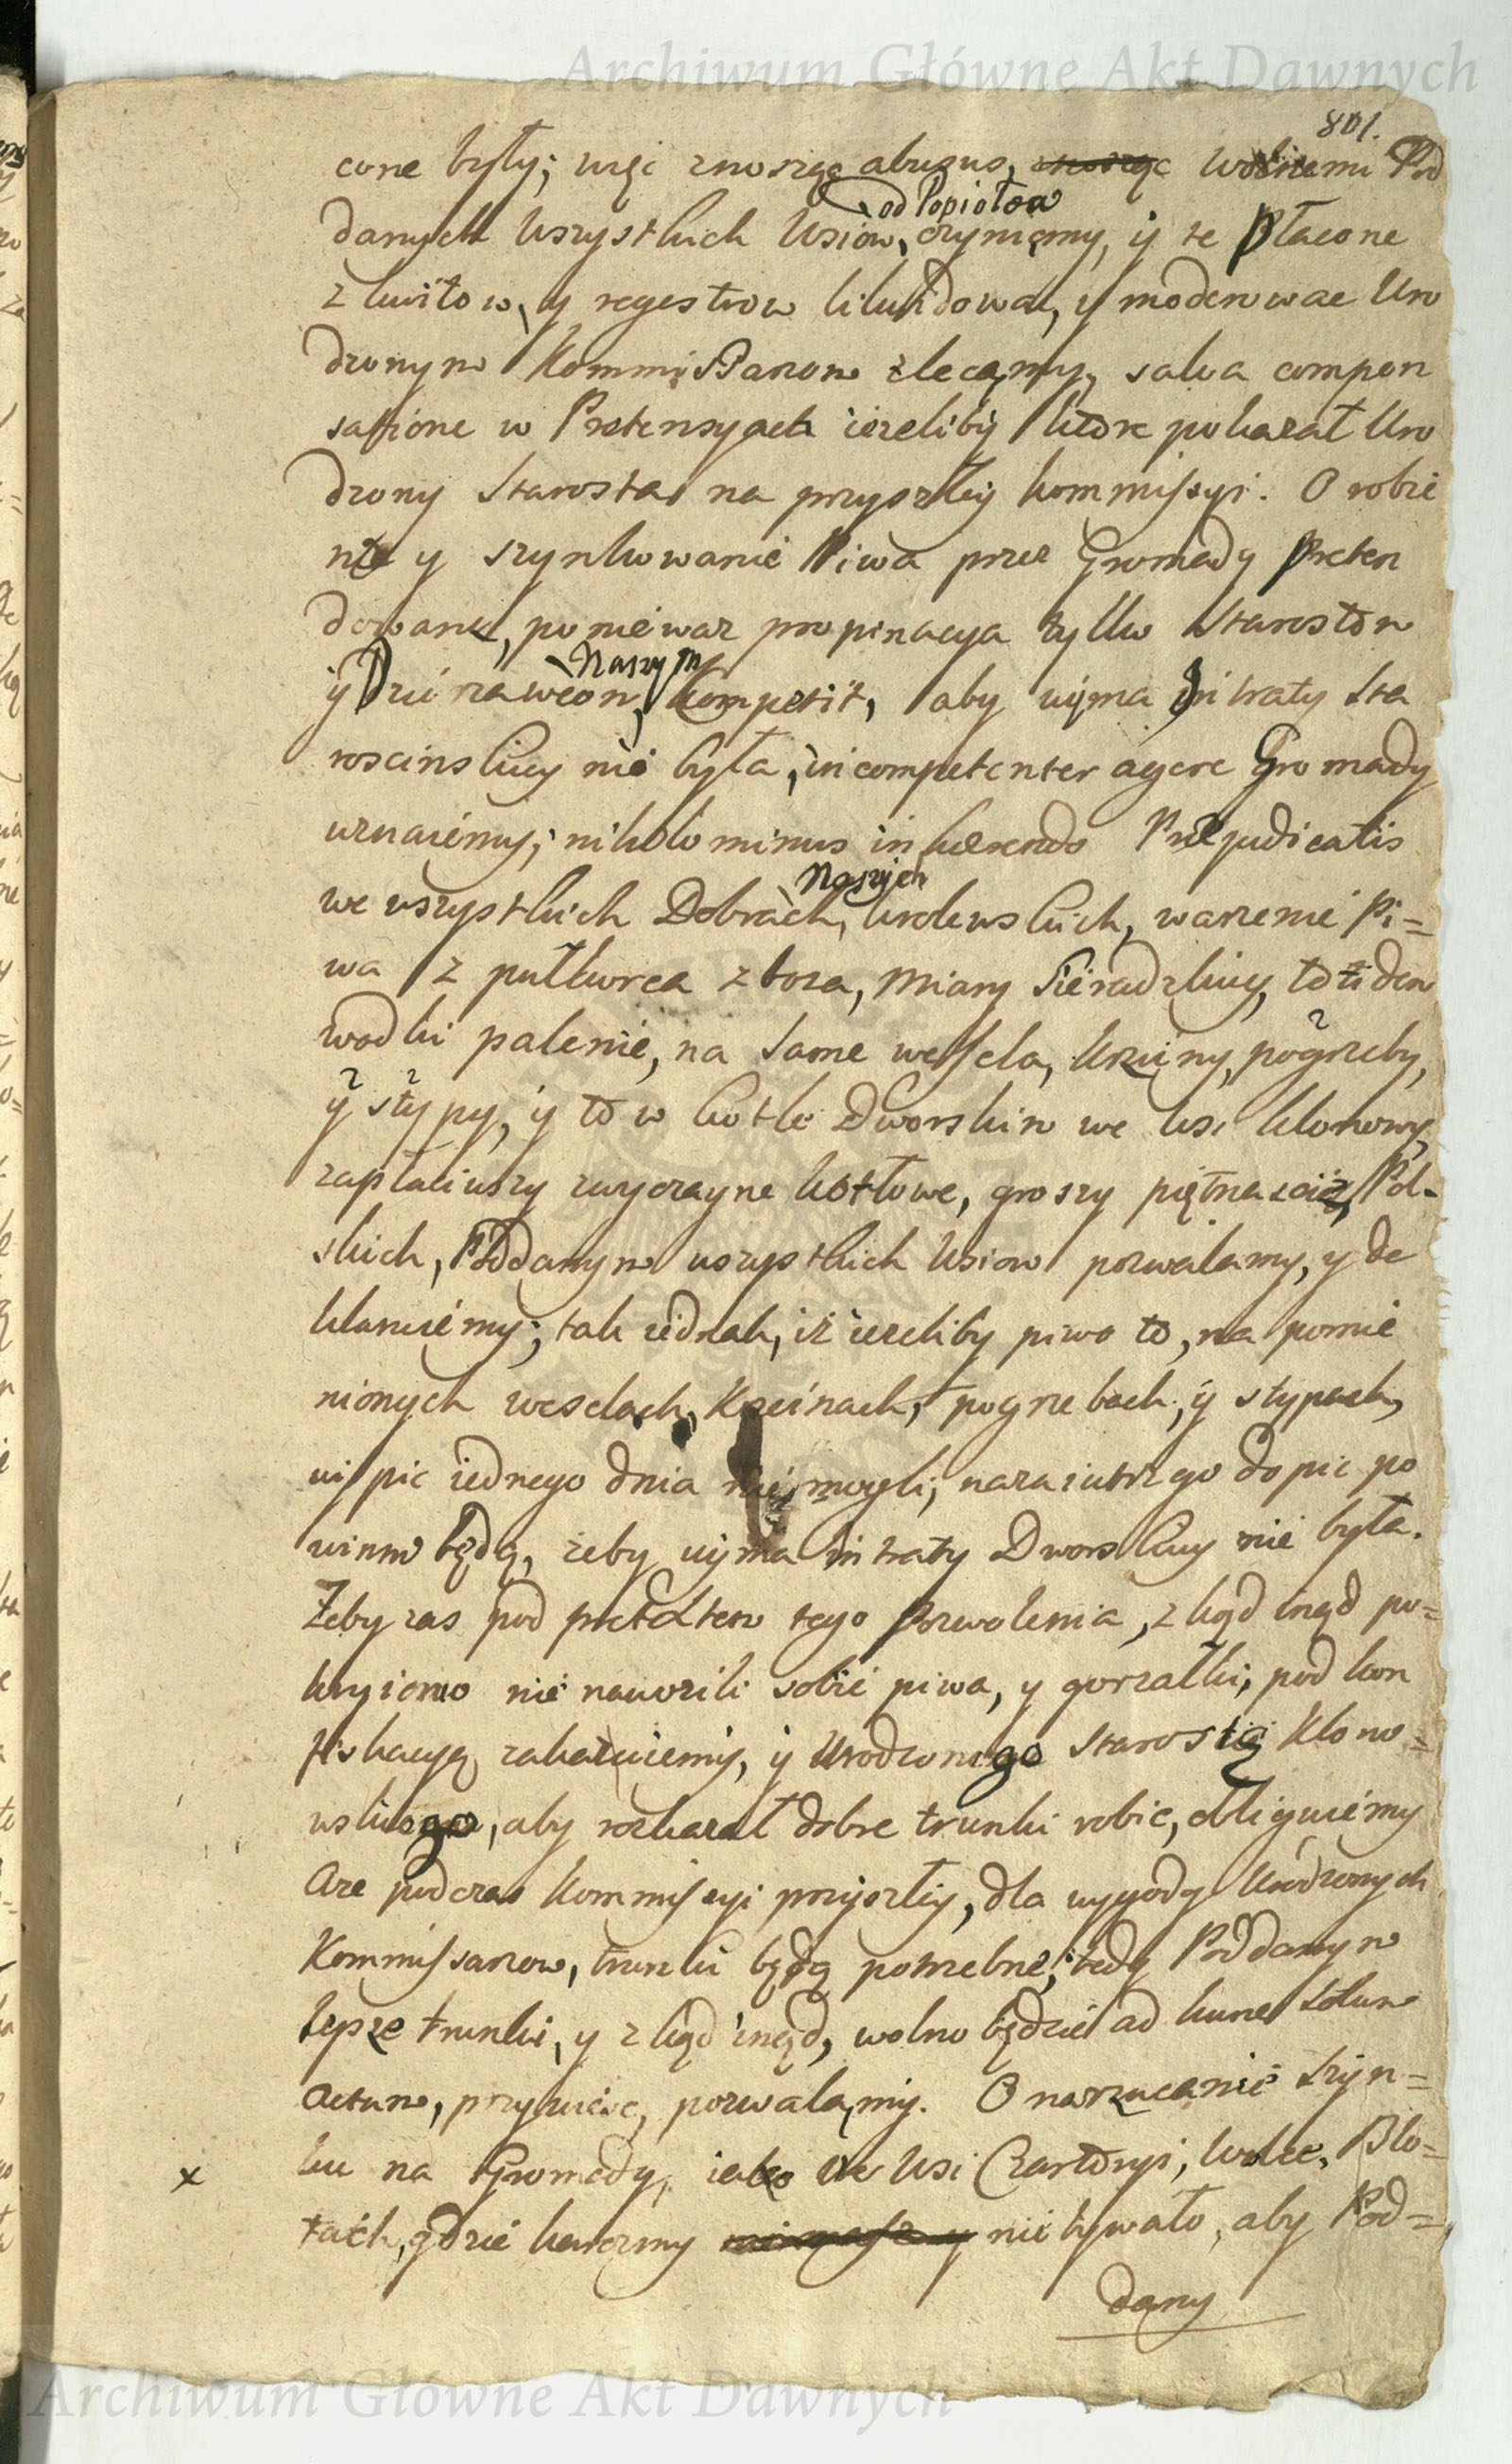 Archiwum Główne Akt Dawnych
801.
cone były; więc znosząc abusus, znosząc wolnemi Pod
od Popiołow
danych wszystkich Wsiow, czyniemy, y te płacone
z kwitow, y regestrow likwidować, y moderować Uro
dzonym Kommissarzom zlecamy, salva compen
satione w Pretensyach ieżeliby które pokazał Uro
dzony Starosta na przyszłey kommissyi. O robie
nie y szynkowanie Piwa przez Gromady preten
dowane, ponieważ propinacya tylko Starostom
Naszym
y Dzierzawcom, kompetit, aby uyma intraty sta
roscinskiey nie była, incompetenter agere Gromady
uznaiemy; nihilominus inhærendo Præjudicatis
Naszych
we wszystkich Dobrach, krolewskich, warzenie Pi=
wa z pułkorca zboza, miary Sieradzkiey, totidem
wodki palenie, na same wessela, krzciny, pogrzeby,
y stypy, y to w kotle Dworskim we wsi klonowy,
zapłaciwszy zwyczayne kotłowe, groszy piętnascie, Pol-
skich, Poddanym wszystkich Wsiow pozwalamy, y de
klaruiemy; tak iednak, iż ieżeliby piwo to, na pomie
nionych weselach, Krzcinach, pogrzebach, y stypach,
wypic iednego dnia nie mogli, nazaiutrz go dopic po
winni będą, żeby uyma intraty Dworskiey nie była.
Żeby zas pod pretextem tego pozwolenia, z kąd inąd po=
kryiomo nie nawozili sobie piwa, y gorzałki, pod kon
fiskacyą zakazuiemy, y Urodzonego Starostę Klono=
wskiego, aby rozkazał dobre trunki robic, obliguiemy
Aze podczas Kommissyi przyszłey, dla wygody Urodzonych
Kommissarzow, trunki będą potrzebne, tedy Poddanym
lepsze trunki, y z kąd inąd, wolno będzie ad hunc solum
actum, przywiesc, pozwalamy. O narzucanie szyn=
ku na Gromady, iako we Wsi Czartoryi, Wolce, Bło=
tach, gdzie karczmy nie bywało, aby Pod=
dany
x
Archiwum Główne Akt Dawnych